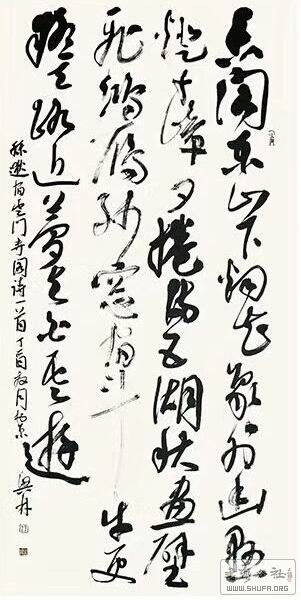 香阁东山下烟花象外幽悬
灯千嶂夕卷幔五湖秋画壁
飞鸿雁纱窗宿斗牛更
疑天路近梦与白云游
孙逖宿云门寺阁诗一首丁酉
WWW.SHUFA.ORG